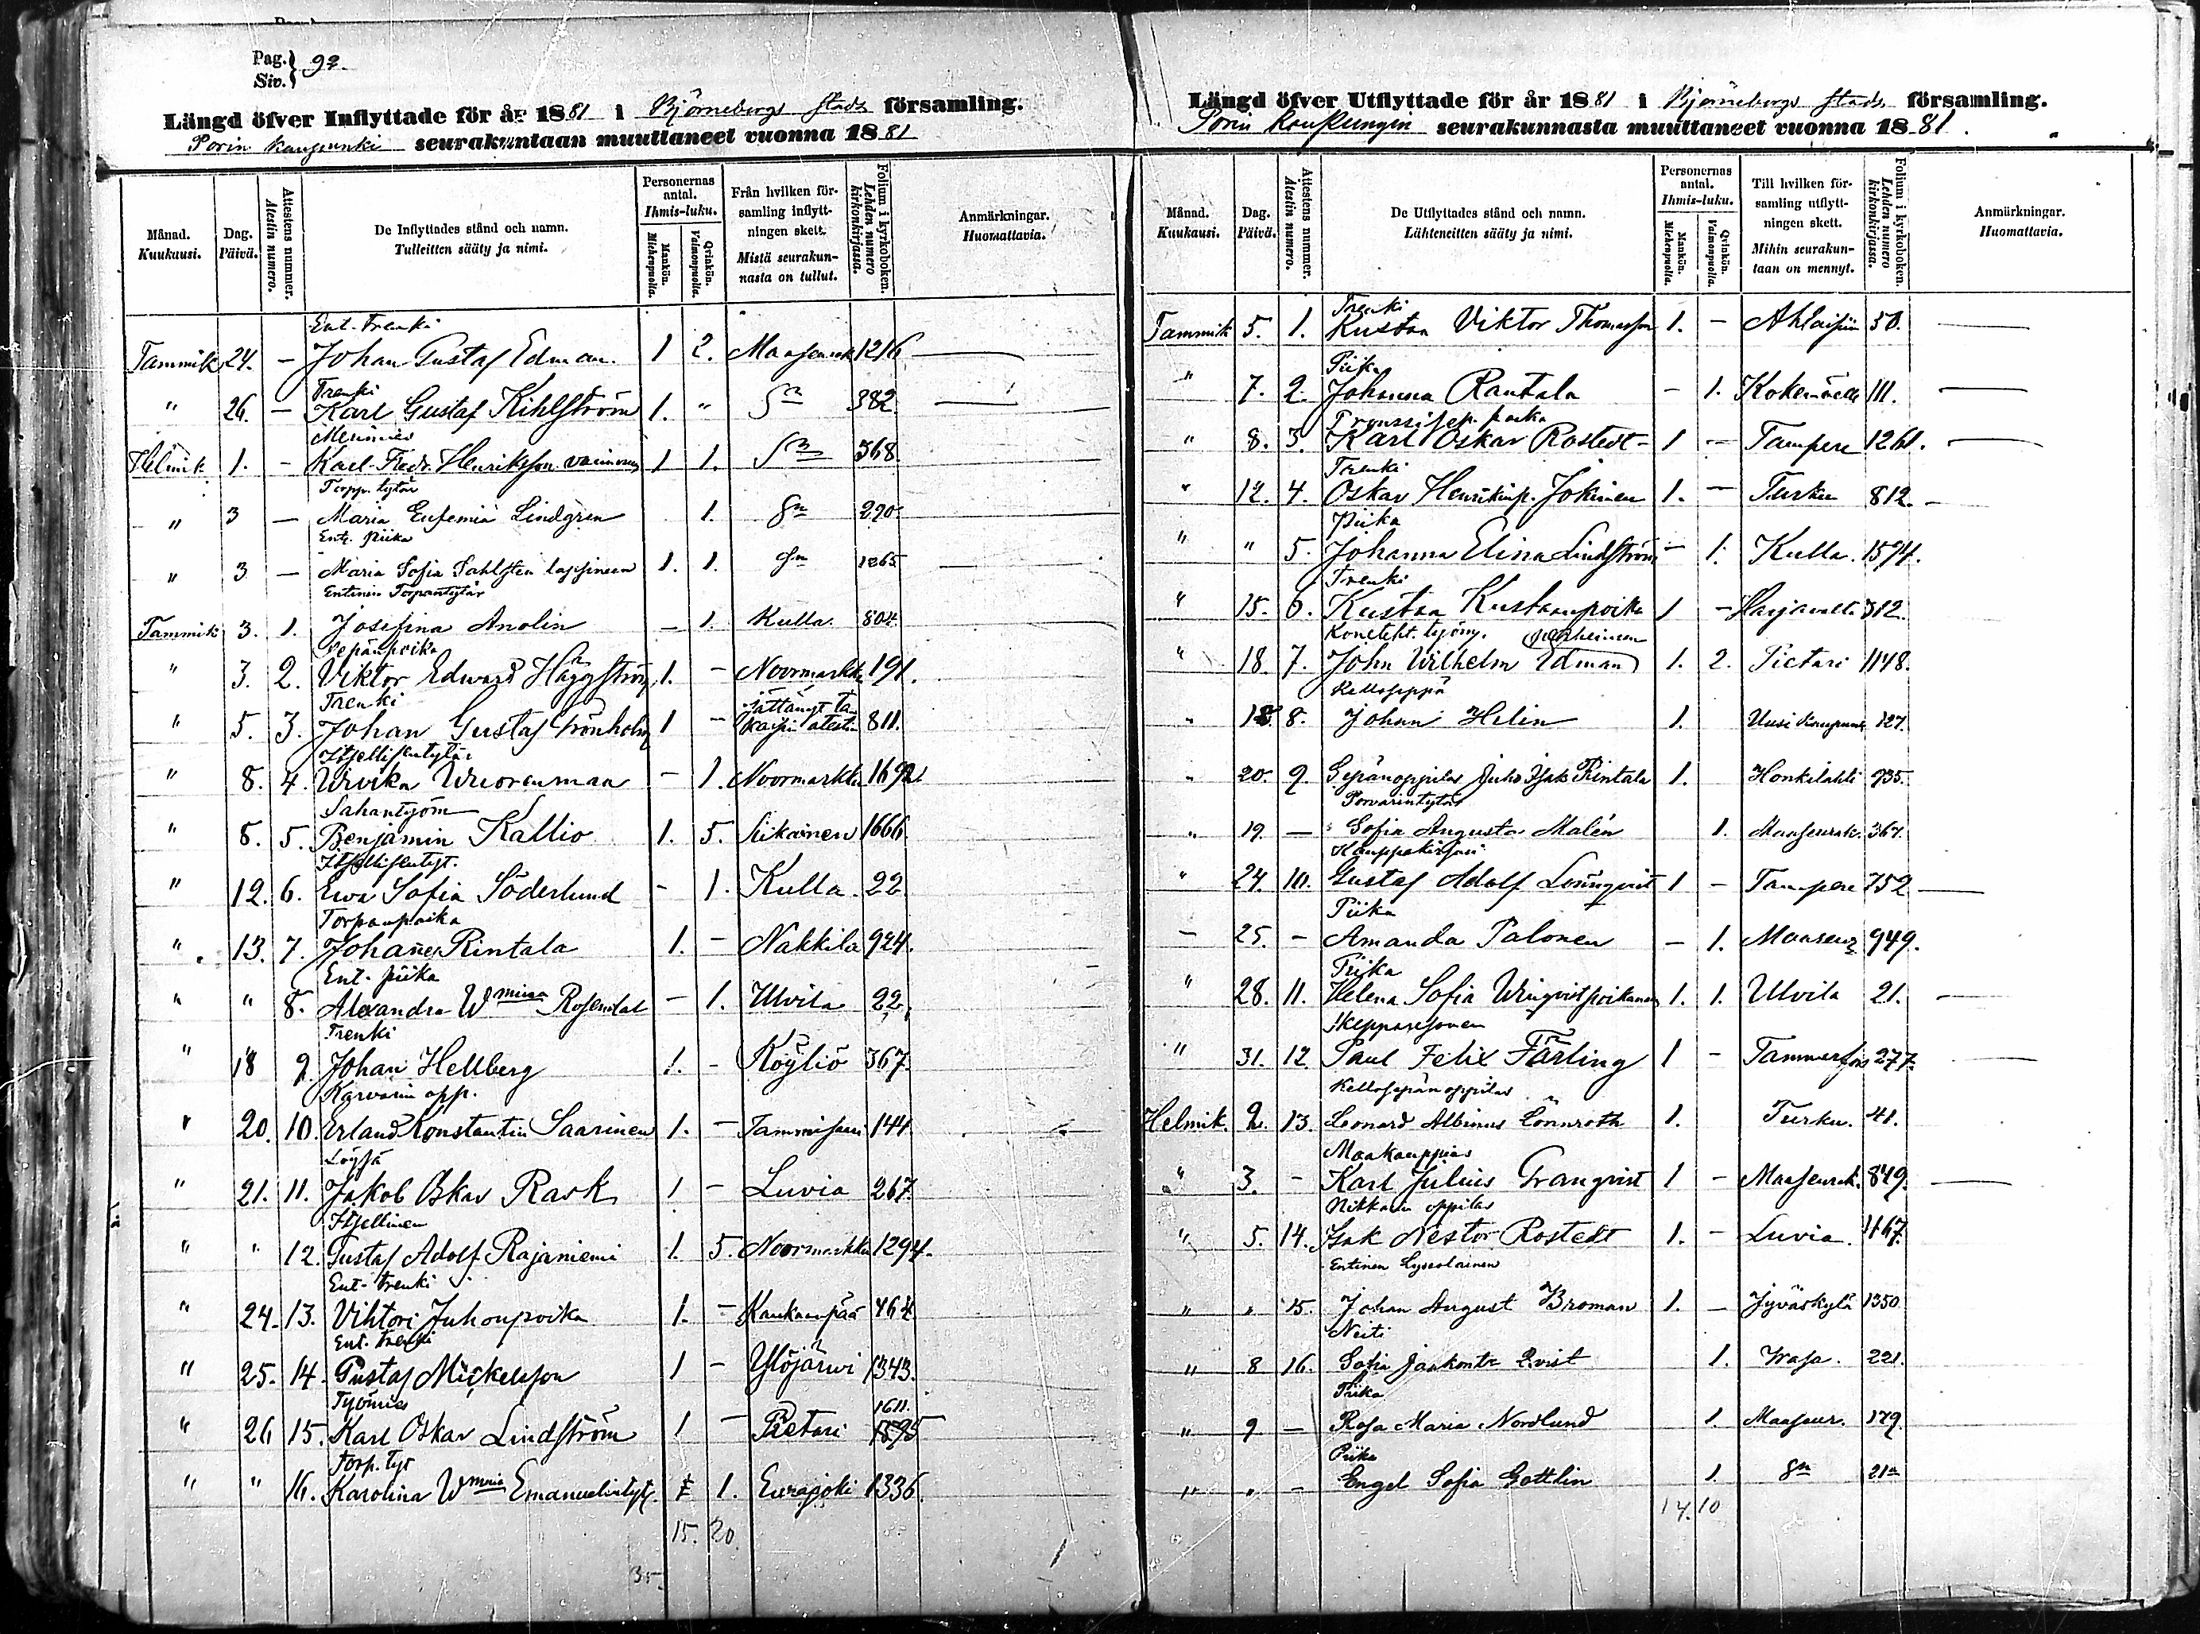 Pag. } 92.
Siv. }
Längd öfver Inflyttade för år 1881 i Björneborgs stads församling.
Porin kaupunki seurakuntaan muuttaneet vuonna 1881
Månad. Kuukausi. Dag. Päivä. Attestens nummer. Atestin numero. De Inflyttades stånd och namn. Tulleitten sääty ja nimi. Personernas antal. Ihmis-luku. Mankön. Miehenpuolia. Qvinkön. Vaimonpuolia. Från hvilken församling inflyttningen skett. Mistä seurakunnasta on tullut. Folium i kyrkoboken. Lehden numero kirkonkirjassa. Anmärkningar. Huomattavia.
Ent. trenki
Tammik 24. — Johan Gustaf Edman. 1 2. Maaseurak 1216 —
Trenki
" 26. — Karl Gustaf Kihlström 1. " Sn 382 —
Merimies
Helmik 1. — Karl Fredr. Henriksson vaimonsa 1 1. Sn 368.
Torpp. tytär
" 3 — Maria Eufemia Lindgren 1. Sn 290.
Ent. piika
" 3 — Maria Sofia Sahlsten lapsineen 1. 1. Sn 1265
Entinen Torpantytär
Tammik 3. 1. Josefina Anolin — 1. Kulla 804.
Sepänpoika
" 3. 2. Viktor Edward Häggström 1. — Noormarkku 191.
Trenki
" 5. 3. Johan Gustaf Grönholm 1 — 811.
Itsellisentytär
" 8. 4. Ulrika Wuorenmaa — 1. Noormarkku 1692
Sahantyöm
" 8. 5. Benjamin Kallio 1. 5. Siikainen 1666
Itsellisentyt.
" 12. 6. Ewa Sofia Söderlund — 1. Kulla 22
Torpanpoika
" 13. 7. Johannes Rintala 1. — Nakkila 924.
Ent. piika
" " 8. Alexandra Wmina Rosendal — 1. Ulvila 22.
Trenki
" 18 9. Johan Hellberg 1. — Köyliö 367.
Karvarin opp.
" 20. 10. Erland Konstantin Saarinen 1. — Tammisaari 144.
Löysä
" 21. 11. Jakob Oskar Rask 1 — Luvia 267.
Itsellinen
" " 12. Gustaf Adolf Rajaniemi 1. 5. Noormarkku 1294.
Ent. trenki
" 24. 13. Vihtori Juhonpoika 1. — Kankaanpää 464
Ent. trenki
" 25. 14. Gustaf Mickelsson 1 — Ylöjärwi 1343.
Työmies 1611.
" 26 15. Karl Oskar Lindström 1 — Pietari 1595
Torp. tyt
" " 16. Karolina Wmina Emanuelintyt. 1. Eurajoki 1336.
15. 20.
35.
Längd öfver Utflyttade för år 1881 i Björneborgs stads församling.
Porin kaupungin seurakunnasta muuttaneet vuonna 1881.
Månad. Kuukausi. Dag. Päivä. Attestens nummer. Atestin numero. De Utflyttades stånd och namn. Lähteneitten sääty ja nimi. Personernas antal. Ihmis-luku. Mankön. Miehenpuolia. Qvinkön. Vaimonpuolia. Till hvilken församling utflyttningen skett. Mihin seurakuntaan on mennyt. Folium i kyrkoboken. Lehden numero kirkonkirjassa. Anmärkningar. Huomattavia.
Trenki
Tammik 5. 1. Kustaa Viktor Thomasson 1. — Ahlaisiin 50. —
Piika
" 7. 2. Johanna Rantala — 1. 111. —
poika
" 8. 3. Karl Oskar Rostedt 1 — Tampere 1261. —
Trenki
" 12. 4. Oskar Henrikinp. Jokinen 1. — Turku 812. —
Piika
" " 5. Johanna Elina Lindström — 1. Kulla. 1594.
Trenki
" 15. 6. Kustaa Kustaanpoika 1 — Harjavalta 312.
Koneteht. työm. perheineen
" 18. 7. John Wilhelm Edman 1. 2. Pietari 1148.
Kelloseppä
" 18. 8. Johan Helin 1. Uusikaupunk 127.
" 20. 9. Sepänoppilas Juho Isak Rintala 1. Honkilahti 935.
Porvarintytär
" 19. — Sofia Augusta Malén 1. Maaseurak. 367.
Kauppakirjuri
" 24. 10. Gustaf Adolf Lönnqvist 1 — Tampere 752 —
Piika
— 25. — Amanda Palonen — 1. Maaseur 949.
Piika
" 28. 11. Helena Sofia Winqvist poikansa 1. 1. Ulvila 21. —
" 31. 12. Paul Felix Färling 1 — Tammerfors 277. —
Kellosepänoppilas
Helmik. 2. 13. Leonard Albinus Lönnroth 1. Turku. 41.
Maakauppias
" 3. — Karl Julius Granqvist 1 — Maaseurak. 849. —
Nikkarin oppilas
" 5. 14. Isak Nestor Rostedt 1. — Luvia. 1167.
Entinen Lyseolainen
" " 15. Johan August Broman 1. — Jyväskylä 1350
Neiti
" 8 16. Sofia Qvist 1. Wasa. 221.
Piika
" 9 — Rosa Maria Nordlund 1. Maaseur. 179.
Piika
" " — Engel Sofia Gottlin 1. Sn 212
14. 10